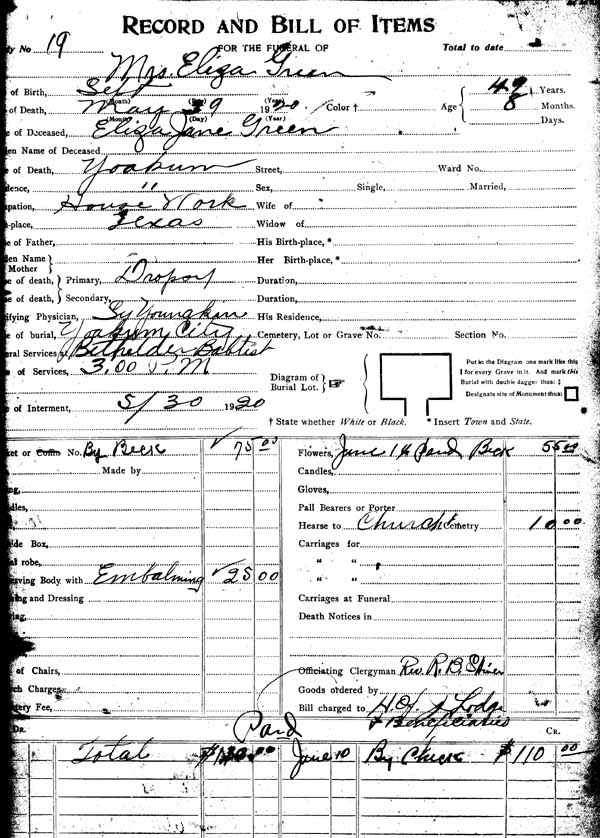 RECORD AND BILL OF ITEMS
ty No 19 FOR THE FUNERAL OF Total to date
Mrs. Eliza Green
of Birth, Sept 49 Years.
(Month) (Day) (Year)
of Death, May 29 1920 Color † Age 8 Months.
(Month) (Day) (Year) Days.
e of Deceased, Eliza Jane Green
en Name of Deceased
e of Death, Yoakum Street, Ward No.
lence, " Sex, Single, Married,
pation, House Work Wife of
-place, Texas Widow of
e of Father, His Birth-place, *
en Name Mother Her Birth-place, *
e of death, Primary, Dropsy Duration,
e of death, Secondary, Duration,
ifying Physician, Sy Youngkin His Residence,
e of burial, Yoakum City Cemetery, Lot or Grave No. Section No.
eral Services at Baptist
e of Services, 3.00 P M
Diagram of Burial Lot.
Put in the Diagram one mark like this
I for every Grave in it. And mark this
Burial with double dagger thus: ‡
Designate site of Monument thus:
e of Interment, 5/30 1920
† State whether White or Black. * Insert Town and State.
ket or Coffin No. By Beck ✓ 75 00
Made by
ng,
dles,
ide Box,
al robe,
erving Body with Embalming ✓ 25 00
ing and Dressing
ring,
of Chairs,
ch Charges
tery Fee,
Flowers, June 14 Paid Beck 55 00
Candles,
Gloves,
Pall Bearers or Porter
Hearse to Church Cemetery 10 00
Carriages for
" "
" "
Carriages at Funeral
Death Notices in
Officiating Clergyman Rev. R. B.
Goods ordered by
Bill charged to Lodge
& Beneficiaries
DR. Paid CR.
Total $ .00 June 10 By Check $110 00